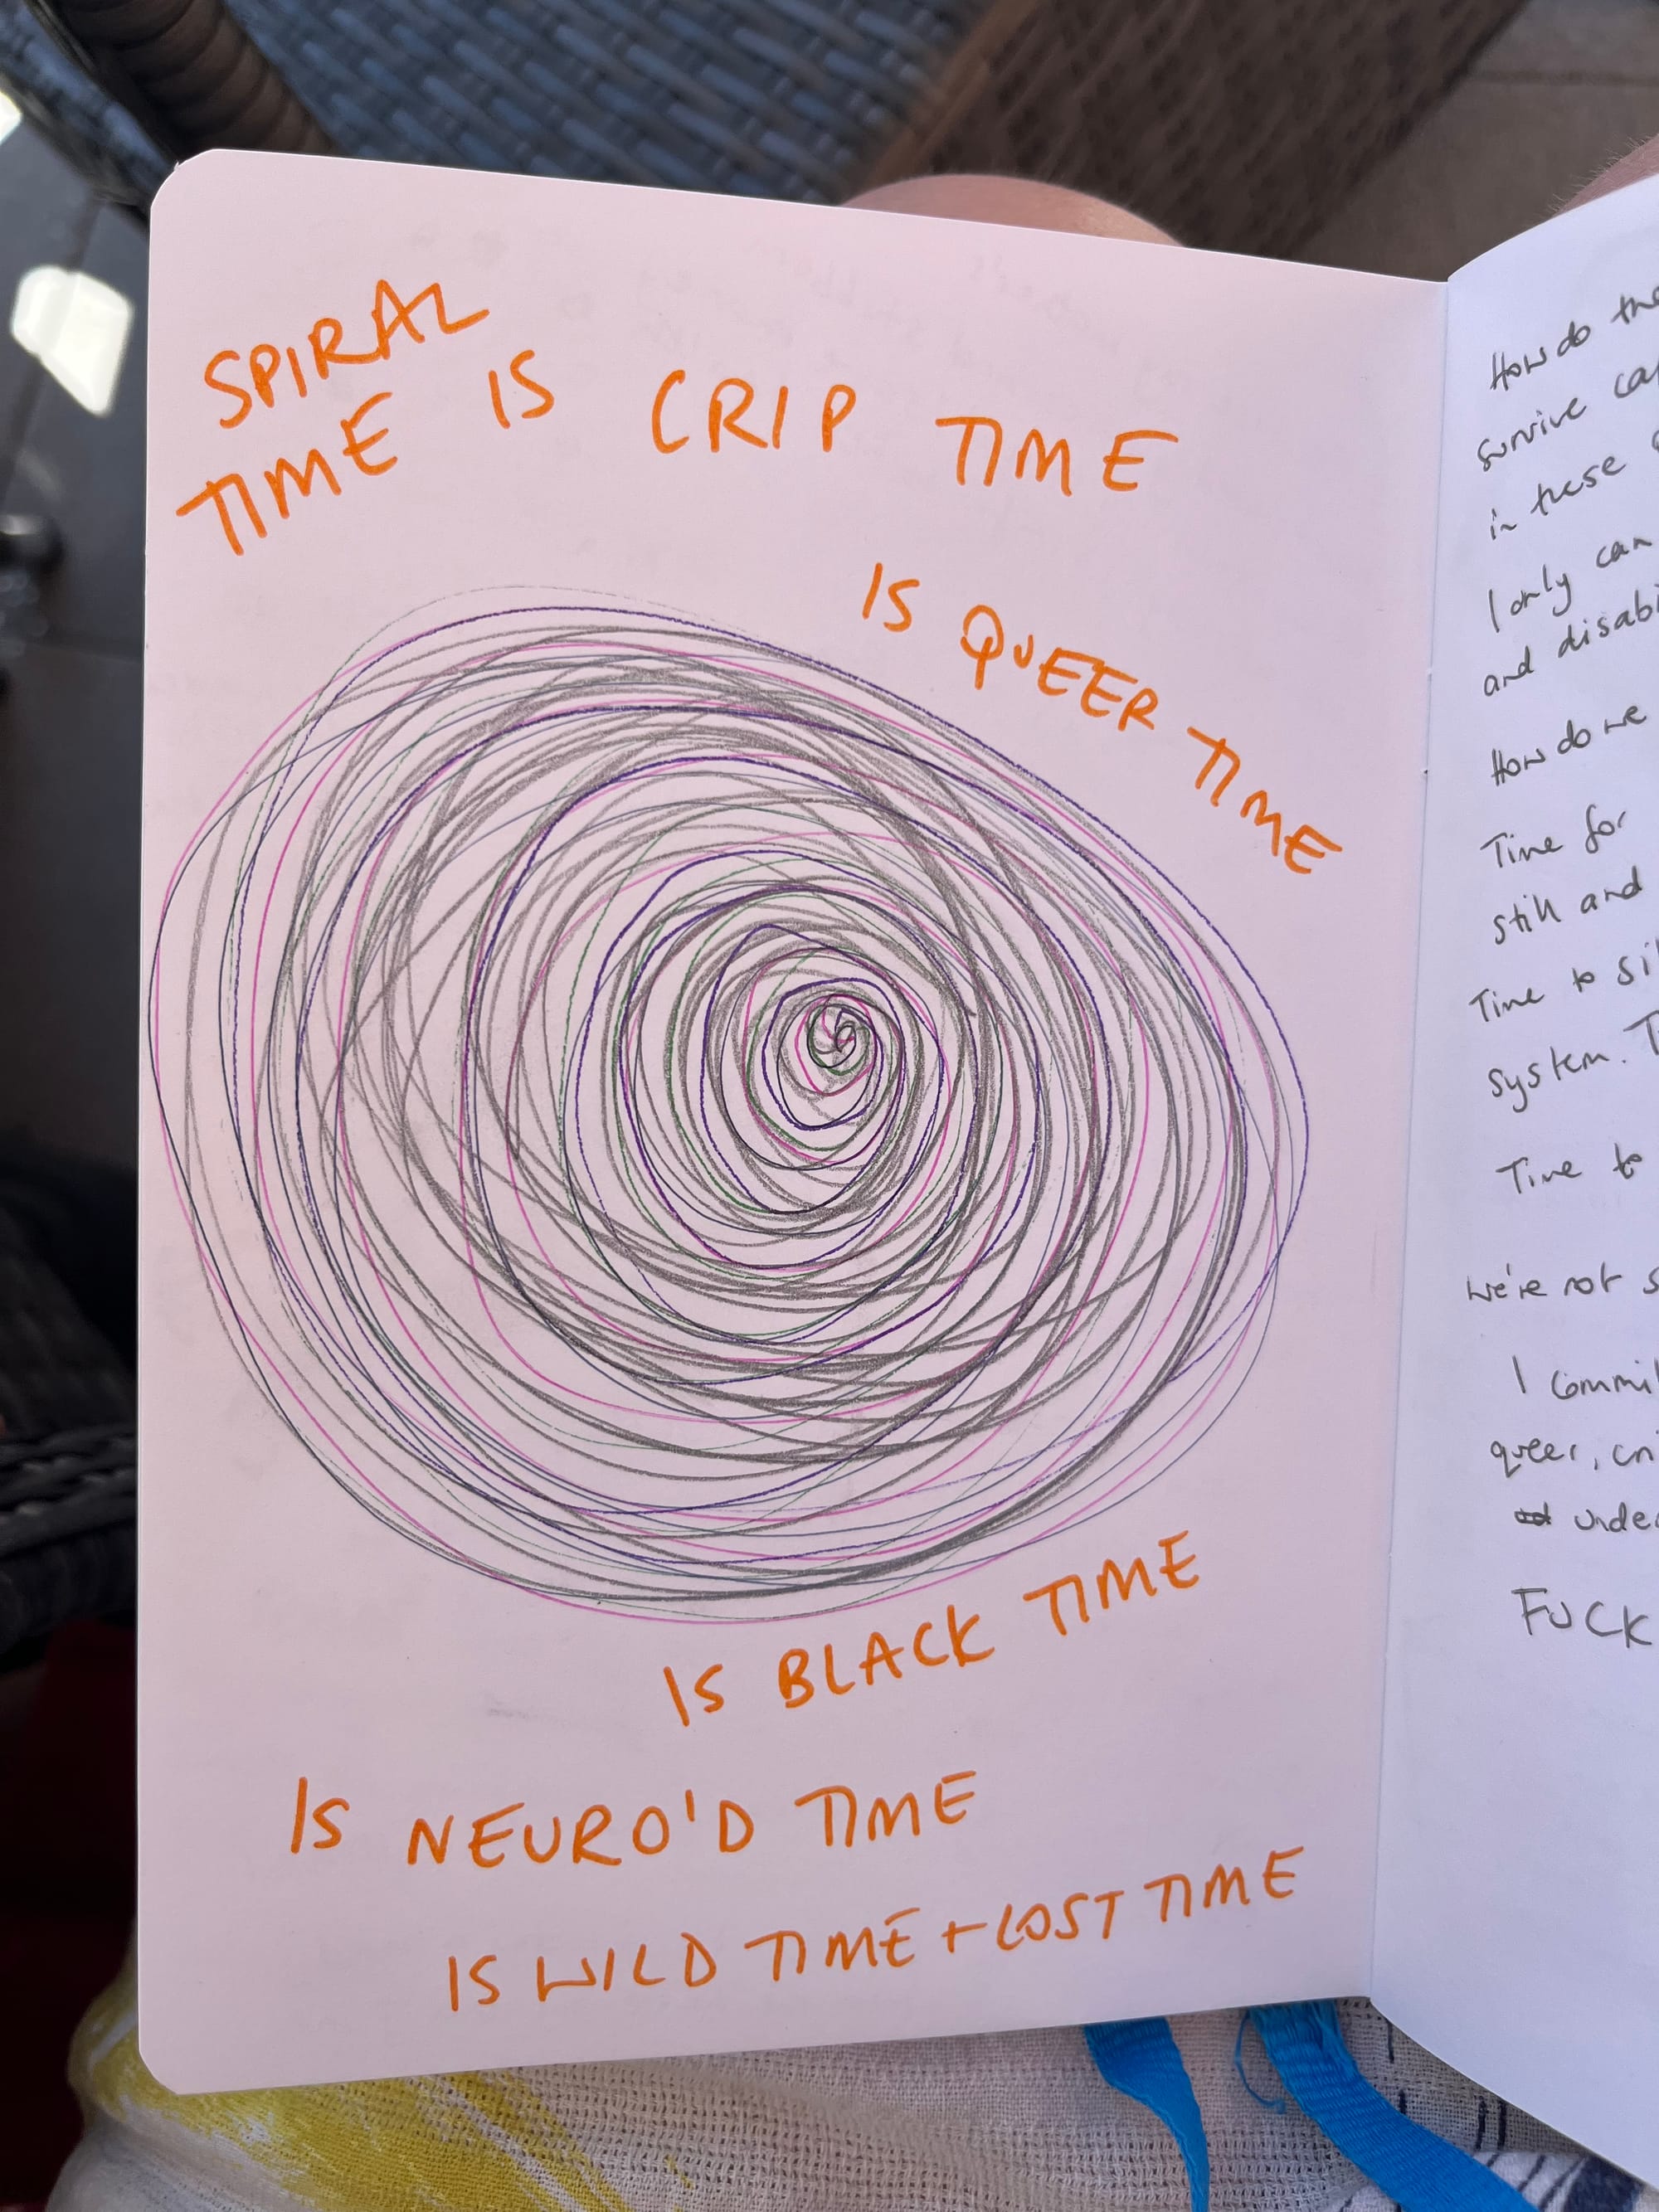 SPIRAL
TIME IS CRIP TIME
IS QUEER TIME
IS BLACK TIME
IS NEURO'D TIME
IS WILD TIME + LOST TIME
How do the
survive
in these
I only can
and disabi
How do we
Time for
still and
Time to
system.
Time to
we're not
I commi
queer,
unde
FUCK